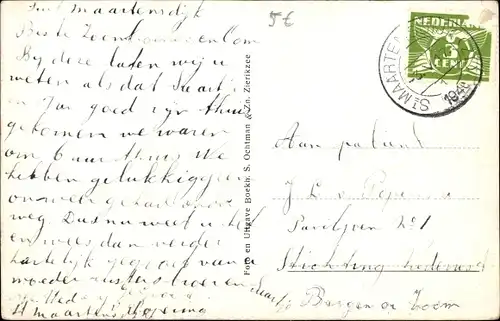 Sint maartensdijk
Beste Toon
By deze laten wij u
weten als dat Saartje
en Jan goed zyn thuis
gekomen we waren
om 6 uur thuis We
hebben gelukkig geen
onweer gehad onder
weg. Dus nu weet u het
en wees dan verder
hartelijk gegroet van u
moeder zusters broer en
St maartensdijk
Foto en Uitgave Boekh. S. Ochtman & Zn. Zierikzee
5£
NEDERLAND
3
CENT
ST MAARTEN
1946
Aan patient
J. L. v.
Paviljoen No 1
Stichting
Bergen op Zoom